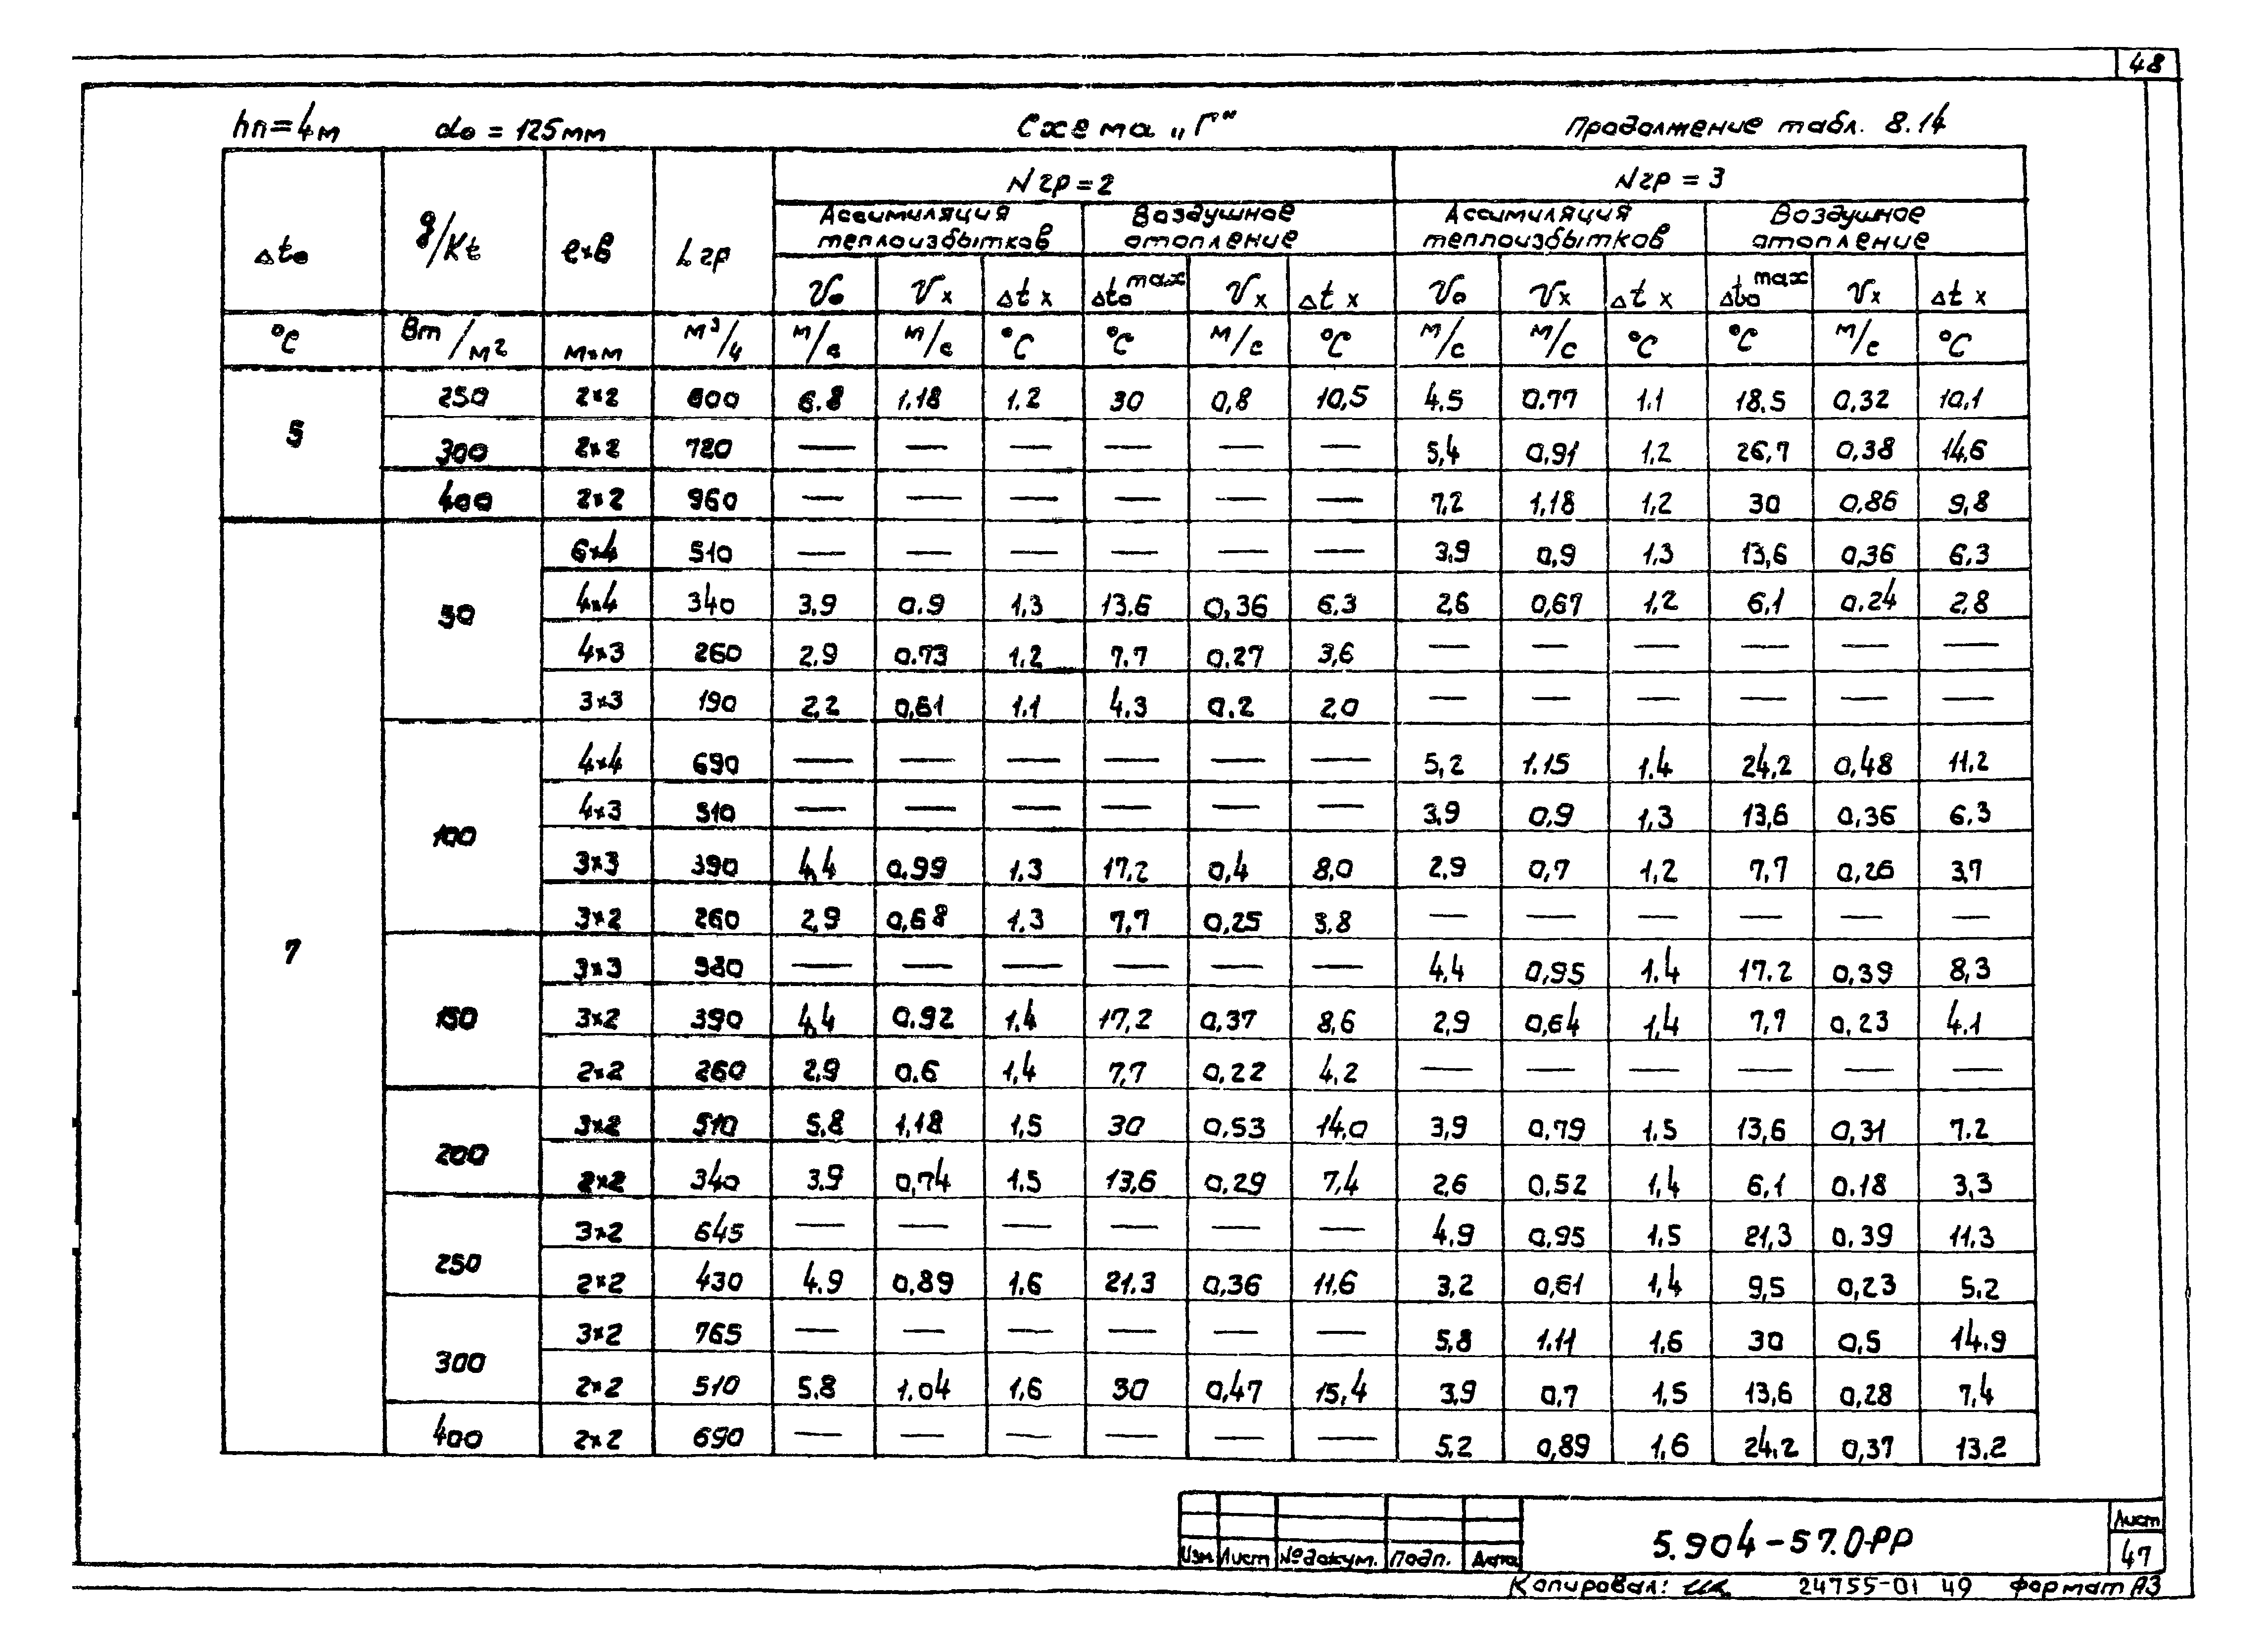 48
hп=4м dо = 125мм Схема „Г" Продолжение табл. 8.14
Δtо g/Kt ℓ×в Lгр Nгр=2 Nгр = 3
Ассимиляция теплоизбытков Воздушное отопление Ассимиляция теплоизбытков Воздушное отопление
Vо Vx Δtx Δtо max Vx Δtx Vо Vx Δtx Δtо max Vx Δtx
°С Вт/м² м×м м³/ч м/с м/с °С °С м/с °С м/с м/с °С °С м/с °С
5 250 2×2 600 6.8 1.18 1.2 30 0,8 10,5 4.5 0.77 1.1 18.5 0,32 10,1
300 2×2 720 — — — — — — 5,4 0,91 1,2 26,7 0,38 14,6
400 2×2 960 — — — — — — 7,2 1,18 1,2 30 0,86 9,8
7 50 6×4 510 — — — — — — 3,9 0,9 1,3 13,6 0,36 6,3
4×4 340 3.9 0.9 1,3 13.6 0,36 6.3 2,6 0,67 1,2 6,1 0.24 2,8
4×3 260 2.9 0.73 1.2 7.7 0,27 3,6 — — — — — —
3×3 190 2,2 0,61 1.1 4.3 0.2 2,0 — — — — — —
100 4×4 690 — — — — — — 5,2 1.15 1.4 24,2 0,48 11,2
4×3 510 — — — — — — 3,9 0,9 1,3 13,6 0,36 6.3
3×3 390 4,4 0.99 1.3 17,2 0,4 8,0 2,9 0,7 1,2 7,7 0,26 3,7
3×2 260 2,9 0,68 1.3 7,7 0,25 3,8 — — — — — —
150 3×3 580 — — — — — — 4,4 0,95 1.4 17.2 0,39 8,3
3×2 390 4,4 0.92 1.4 17,2 0,37 8,6 2,9 0,64 1,4 7,7 0,23 4.1
2×2 260 2,9 0.6 1,4 7,7 0,22 4,2 — — — — — —
200 3×2 510 5,8 1,18 1,5 30 0,53 14,0 3,9 0,79 1.5 13,6 0,31 7.2
2×2 340 3.9 0,74 1.5 13,6 0,29 7,4 2,6 0,52 1,4 6,1 0.18 3,3
250 3×2 645 — — — — — — 4,9 0,95 1,5 21,3 0,39 11.3
2×2 430 4.9 0,89 1.6 21.3 0,36 11,6 3,2 0,61 1,4 9,5 0,23 5.2
300 3×2 765 — — — — — — 5,8 1.11 1,6 30 0,5 14.9
2×2 510 5.8 1,04 1,6 30 0,47 15,4 3,9 0,7 1,5 13,6 0,28 7,4
400 2×2 690 — — — — — — 5,2 0,89 1,6 24,2 0,37 13,2
Изм Лист №докум. Подп. Дата 5.904-57.0-РР Лист 47
Копировал: 24755-01 49 формат А3